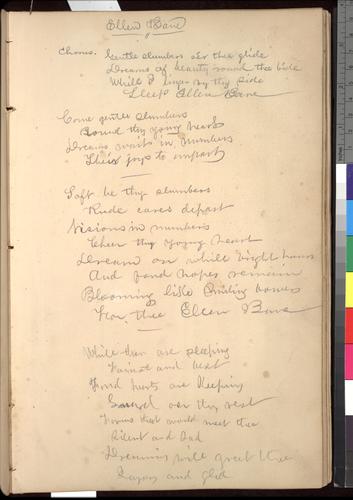 Ellen Bane
Chorus. Gentle slumbers o'er thee glide
Dreams of beauty round thee bide
While I linger by thy side
Sleep Ellen Bane
Come gentle slumbers
Round thy young heart
Dreams wait in numbers
Their joys to impart
Soft be thy slumbers
Rude cares depart
Visions in numbers
Cheer thy young heart
Dream on while bright hours
And fond hopes remain
Blooming like smiling bowers
For thee Ellen Bane
While thou art sleeping
Fairest and best
Fond hearts are keeping
Guard over thy rest
Forms that would meet thee
Silent and sad
Dreaming will greet thee
Joyous and glad